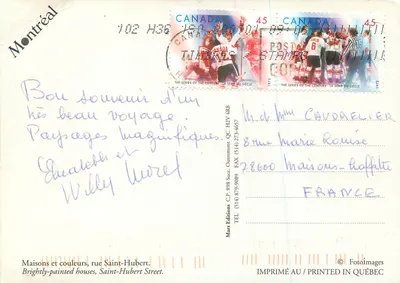 Montréal
CANADA 45
CANADA 45
Bon souvenir d'un
très beau voyage.
Paysages magnifiques.
Elisabeth et
Willy Morel
M. et Mme CAVRELIER
8 rue Marie Louise
78600 Maisons-Laffitte
FRANCE
Mars Editions C.P. 898 Succ. Chaumont QC H2V 4R8
TEL (514) 273-6057 FAX (514) 879-9089
Maisons et couleurs, rue Saint-Hubert.
Brightly-painted houses, Saint-Hubert Street.
© Fotoimages
IMPRIMÉ AU / PRINTED IN QUÉBEC